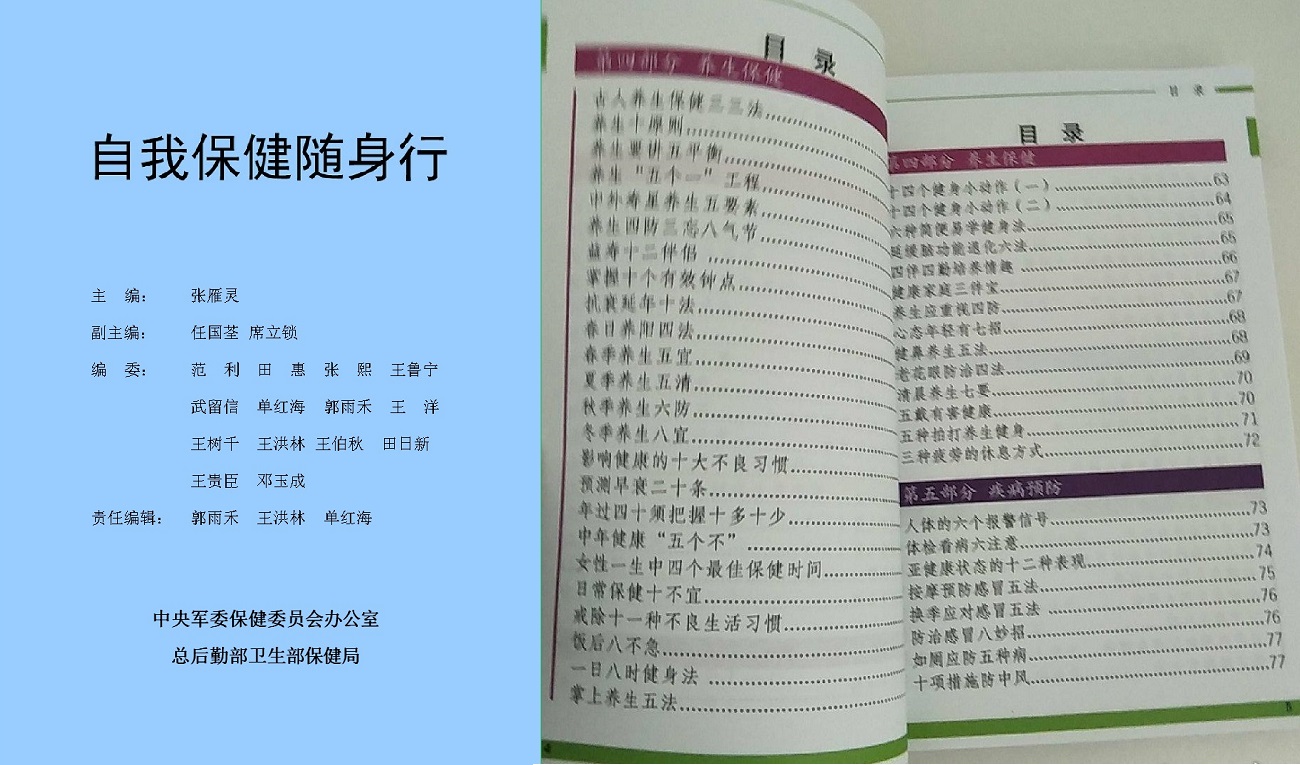 自我保健随身行
主 编： 张雁灵
副主编： 任国荃 席立锁
编 委： 范 利 田 惠 张 熙 王鲁宁
武留信 单红海 郭雨禾 王 洋
王树千 王洪林 王伯秋 田日新
王贵臣 邓玉成
责任编辑： 郭雨禾 王洪林 单红海
中央军委保健委员会办公室
总后勤部卫生部保健局
目 录
第四部分 养生保健
古人养生保健三三法
养生十原则
养生要讲五平衡
养生“五个一”工程
中外寿星养生五要素
养生四防三忘八气节
益寿十二伴侣
掌握十个有效钟点
抗衰延年十法
春日养阳四法
春季养生五宜
夏季养生五清
秋季养生六防
冬季养生八宜
影响健康的十大不良习惯
预测早衰二十条
年过四十须把握十多十少
中年健康“五个不”
女性一生中四个最佳保健时间
日常保健十不宜
戒除十一种不良生活习惯
饭后八不急
一日八时健身法
掌上养生五法
4
目 录
目 录
第四部分 养生保健
十四个健身小动作（一）63
十四个健身小动作（二）64
六种简便易学健身法65
延缓脑功能退化六法65
四伴四勤培养情趣66
健康家庭三件宝67
养生应重视四防67
心态年轻有七招68
健鼻养生五法68
老花眼防治四法69
清晨养生七要70
五戴有害健康70
五种拍打养生健身71
三种疲劳的休息方式72
第五部分 疾病预防
人体的六个报警信号73
体检看病六注意73
亚健康状态的十二种表现74
按摩预防感冒五法75
换季应对感冒五法76
防治感冒八妙招76
如厕应防五种病77
十项措施防中风77
5